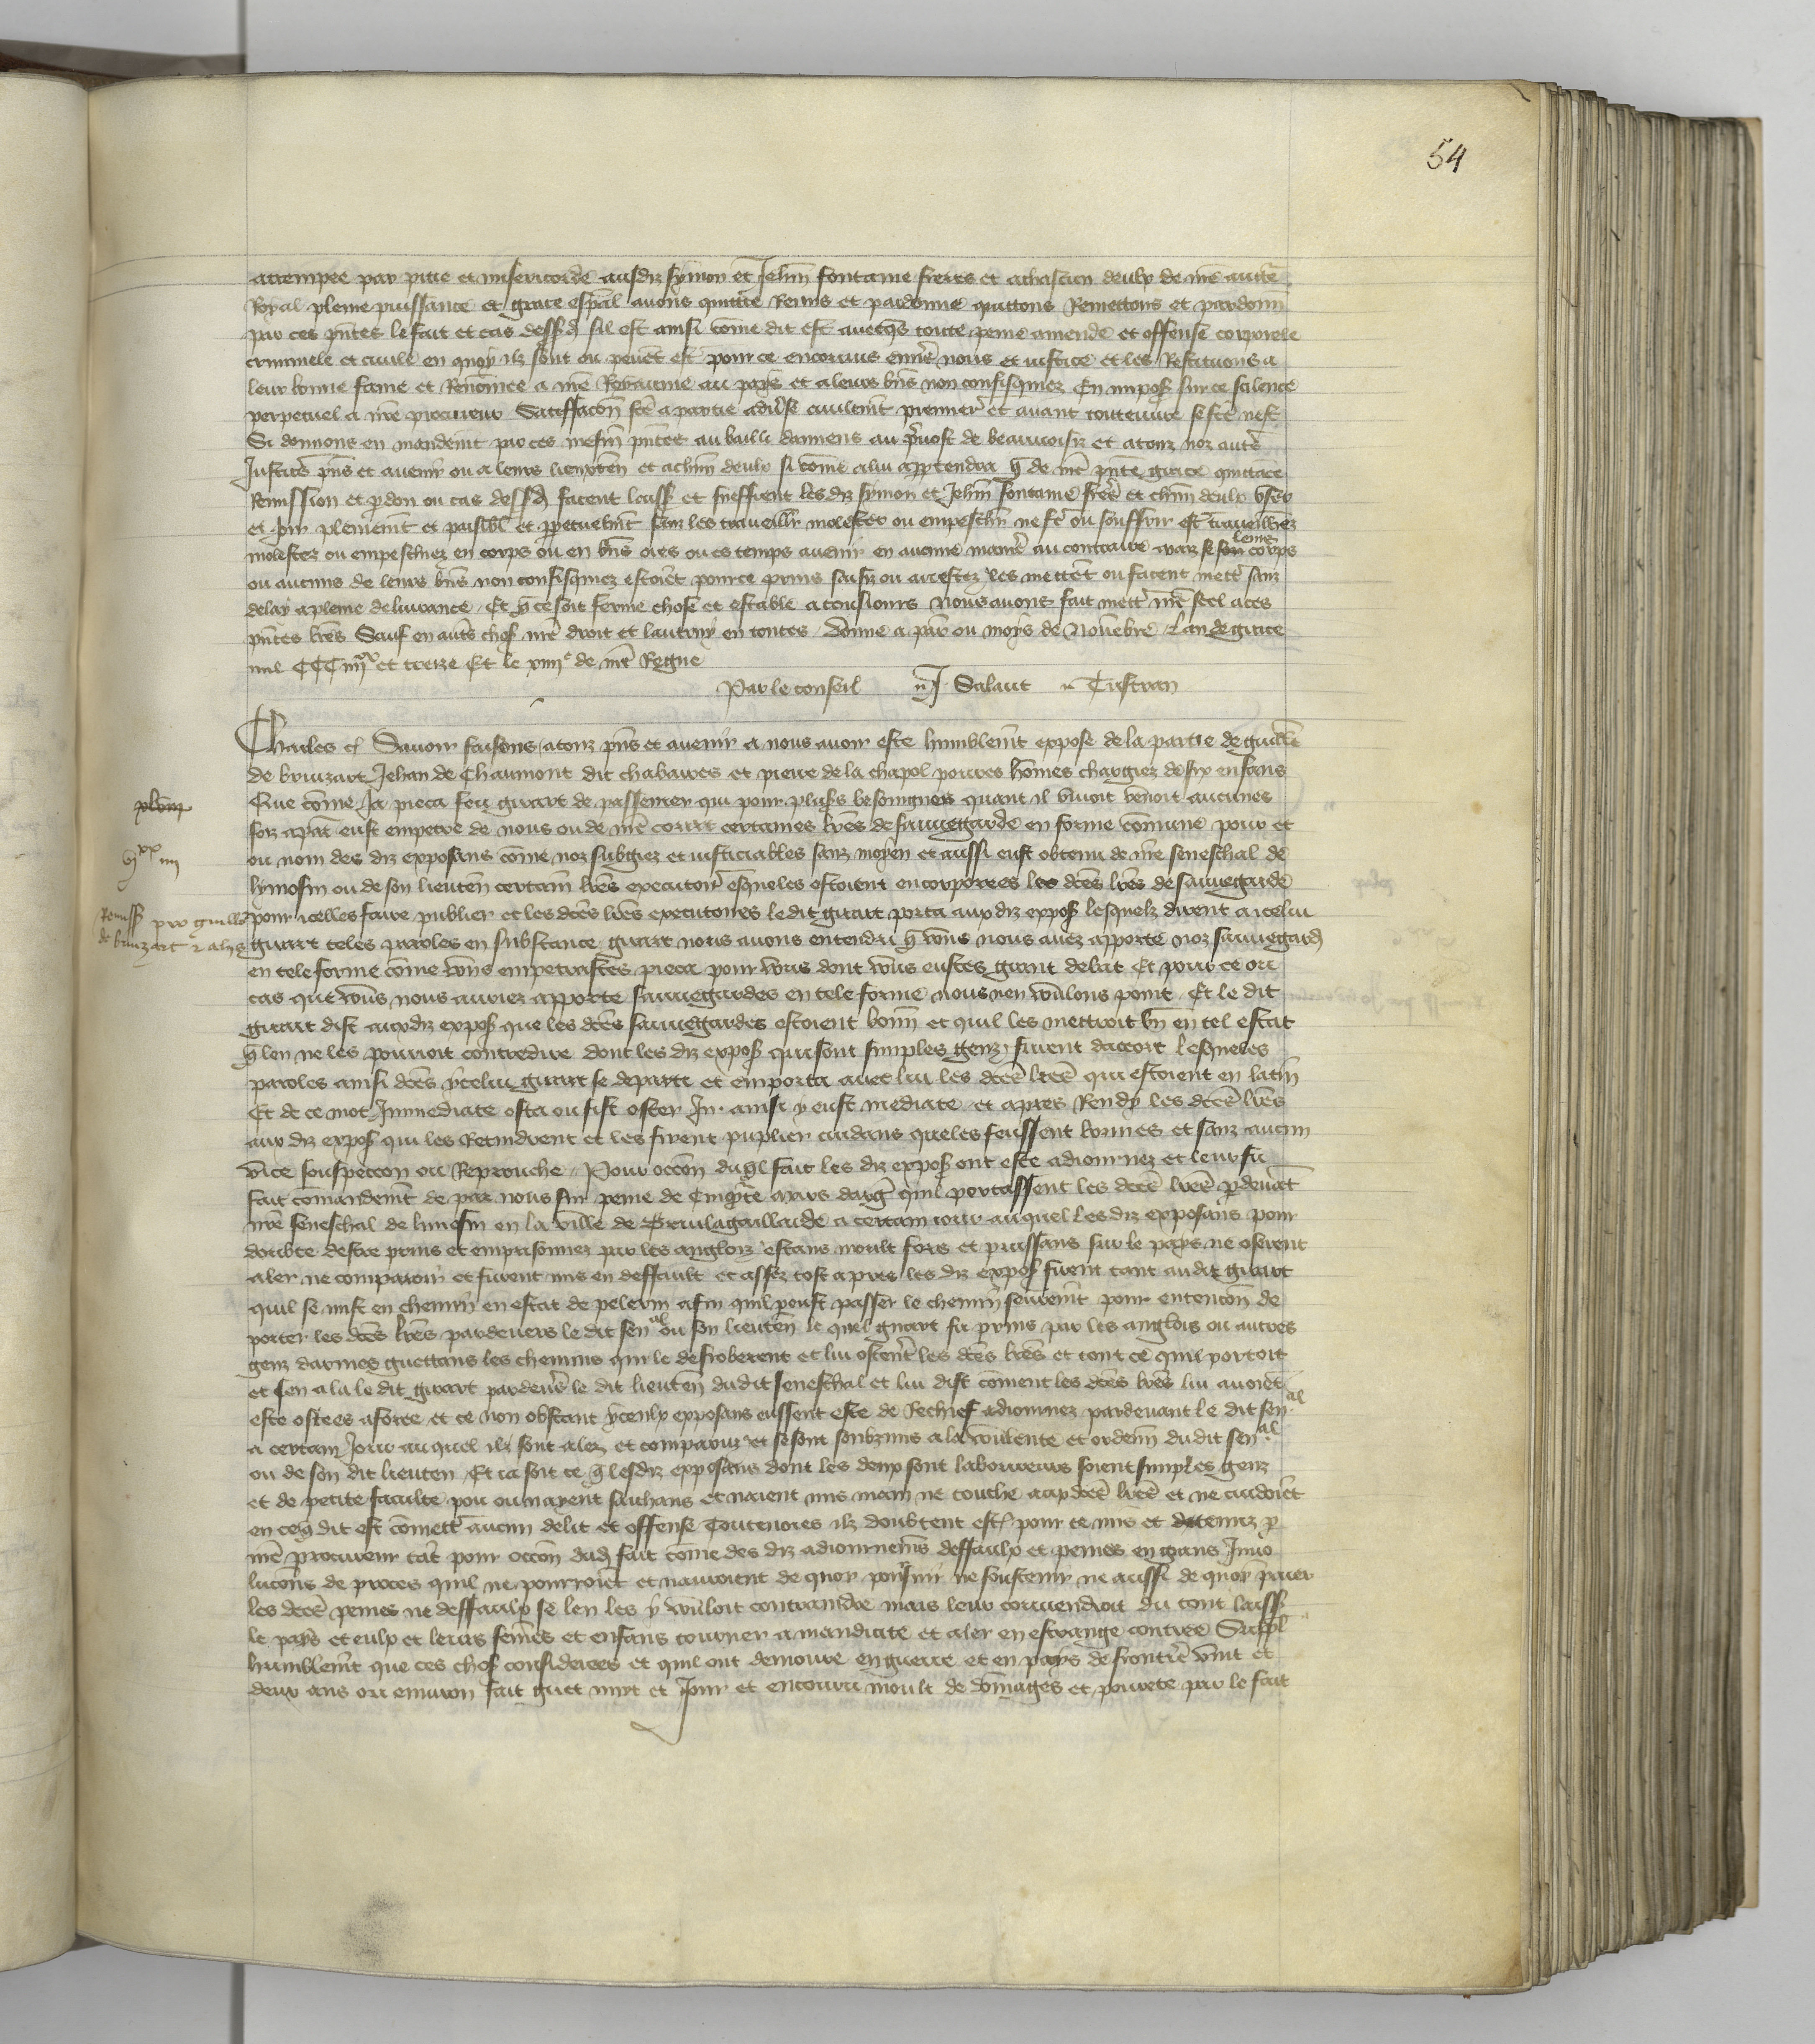 54
attempee par pitie et misericorde ausdiz symon et Jehan fontaine freres et achascun deulx de nre auctte
Royal pleine puissance et grace espal avons quitte Remis et pardonne quittons Remettons et pardonn
par ces pntes le fait et cas dessd sil est ainsi come dit est avecqs toute peine amende et offense corporele
criminele et civile en quoy ilz sont ou peuet est pour ce encourus envs nous et justice et les Restituons a
leur bonne fame et Renomee a nre Royaume au pays et a leurs bns non confisquiez En impos sur ce scilence
perpetuel a nre procureur Satiffacon fce a partie adverse civilmt premier et avant toutevure se fce nest
Si donnons en mandemt par ces mesm pntes au bailli damiens au pvost de beauvoisiz et atouz noz autr
Justic pns et avenir ou a leurs lieuxten et achun deulx si come alui appartendra q de nre pnte grace quittace
Remission et pdon ou cas dessd facent laiss et sueffrent les diz symon et Jehan fontaine frer et chun deulx user
et joir plenemt et paisibl et ppetuelmt sanz les traveillir molester ou empeschir ne fe ou souffrir est traveillez
molestez ou empeschiez en corps ou en bns ores ou es temps avenir en aucune manie au contraire maiz se son leurs corps
ou aucuns de leurs bns non confisquiez estoiet pource prins saisiz ou arrestez les mettet ou facent mett sanz
delay a pleine delivrance Et q ce soit ferme chose et estable a tousiours Nous avons fait mett nre seel aces
pntes lres Sauf en auts chos nre droit et lautruy en toutes Donne a par ou moys de Novebre Lan de grace
mil CCC iiiixx et treze Et le xiiiie de nre Regne
Par le conseil J Salaut Tristran
plbm
ixx iiii
Remiss pro guillo
de bruzart et aliis
Charles et Savoir faisons atouz pns et avenir a nous avoir este humblemt expose de la partie de guille
de bruzart Jehan de Chaumont dit chabaures et pierre de la chapol povres homes chargiez de six enfans
Que come Ja pieca feu girart de passemer qui pour pluss besoingnes quant il vivoit venoit aucunes
foiz apar eust empetre de nous ou de nre court certaines lres de sauvegarde en forme comune pour et
ou nom des diz exposans come noz subgiez et justiciables sanz moyen et aussi eust obtenu de nre seneschal de
lymosin ou de son lieuten certain lres executoir esqueles estoient encorporees les dces lres de sauvegarde
pour icelles faire publier et les dces lres executoires le dit girart porta aux diz expos lesquelz dirent a icelui
girart teles paroles en substance girart nous avons entendu q vous nous avez apporte noz sauvegard
en tele forme come vous empetrastes pieca pour vous dont vous eustes grant debat Et pour ce ou
cas que vous nous auriez apporte sauvegardes en tele forme nous nen voulons point Et le dit
girart dist auxdiz expos que les dces sauvegardes estoient bonn et quil les mettroit bn en tel estat
q len ne les pourroit contredire dont les diz expos qui sont simples genz furent daccort Lesqueles
paroles ainsi dces ycelui girart se departi et emporta avec lui les dces lres qui estoient en latin
Et de ce mot Inmediate osta ou fist oster In ainsi y eust mediate et apres Rendy les dces lres
aux diz expos qui les Retindrent et les firent puplier cuidans queles feussent bonnes et sanz aucun
vice souspeccon ou Reprouche Pour occon duql fait les diz expos ont este adjournez et leur fu
fait comandemt de par nous sur peine de cinqte mars darg quil portassent les dces lres pdevat
nre seneschal de limosin en la ville de Brivelagaillarde a certain jour auquel les diz exposans pour
doubte destre prins et emprisonnez par les angloiz estans moult fors et puissans sur le pays ne oserent
aler ne comparoir et furent mis en deffault et assez tost apres les diz expos firent tant audit girart
quil se mist en chemin en estat de pelerin afin quil peust passer le chemin seuremt pour entencon de
porter les dces lres pardevers le dit senal ou son lieuten le quel girart fu prins par les anglois ou autres
genz darmes guettans les chemins qui le desroberent et lui ostert les dces lres et tout ce quil portoit
et sen ala le dit girart pardevs le dit lieuten dudit seneschal et lui dist coment les dces lres lui avoiet
este ostees aforce et ce non obstant yceulx exposans eussent este de Rechief adjournez pardevant le dit senal
a certain Jour auquel ilz sont alez et comparuz et se sont soubzmis a la voulente et ordenn dudit senal
ou de son dit lieuten Et ja soit ce q lesdiz exposans dont les deux sont laboureurs soient simples genz
et de petite faculte pou ou naient saichans et naient mis main ne touche aux dces lres et ne cuidoiet
en ceq dit est comett aucun delit et offense Toutevoies ilz doubtent est pour ce mis et detenuz p
nre procureur tat pour occon dud fait come des diz adjournems deffaulx et peines en grans Invo
lucons de proces quil ne pourroiet et nauroient de quoy poursuir ne soustenir ne aussi de quoy paier
les dces peines ne deffaulx se len les y vouloit contraindre mais leur convendroit du tout laiss
le pays et eulx et leurs femes et enfans tourner a mendicite et aler en estrange contree Suppl
humblemt que ces chos considerees et quil ont demoure en guerre et en pays de frontie vint et
deux ans ou environ fait guet nuyt et Jour et encouru moult de domages et povrete par le fait